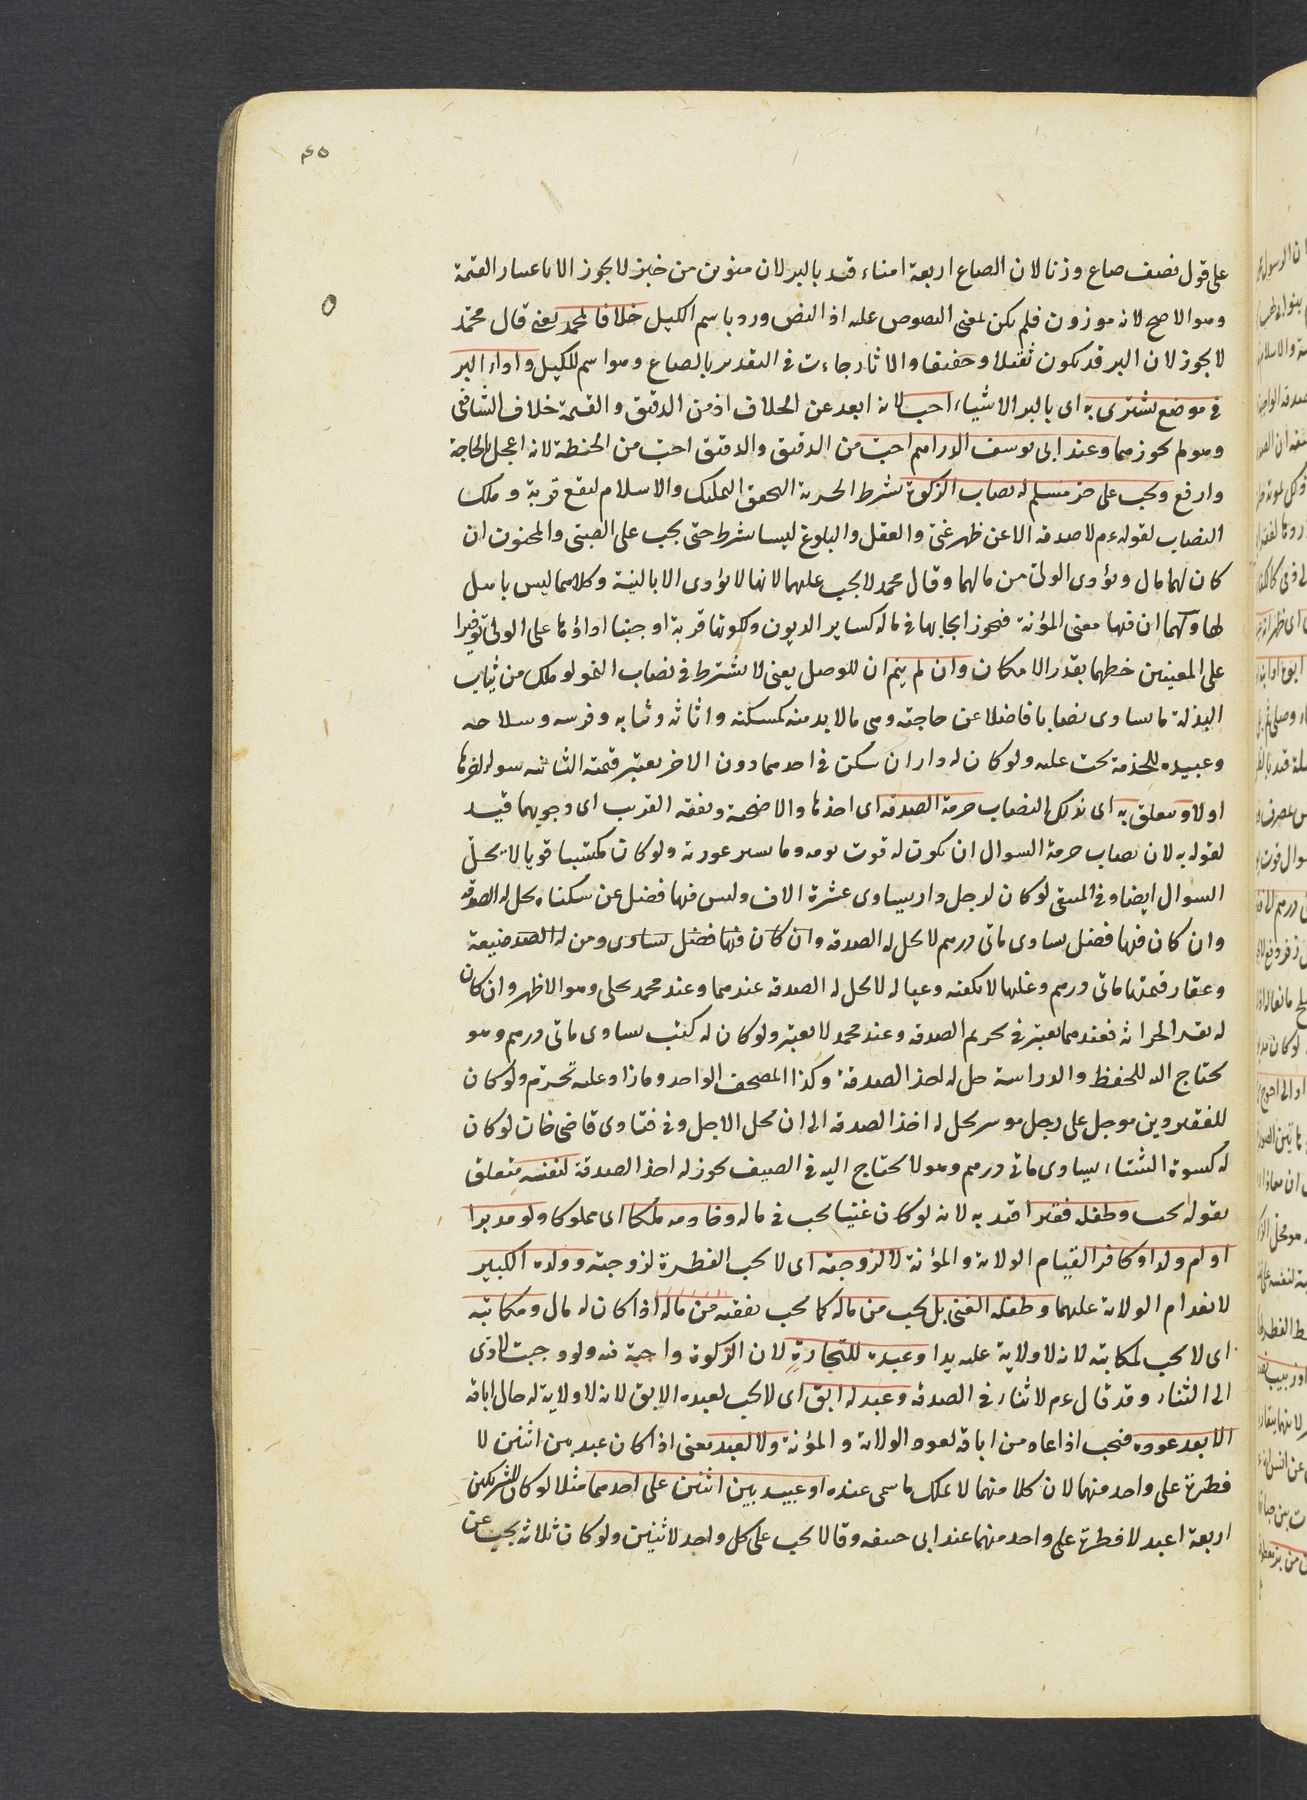 ٤٥
على قول نصف صاع وزنا لان الصاع اربعة امناء قيد بالبر لان منوين من خبز لا يجوز الا باعتبار القيمة
وهو الاصح لانه موزون فلم يكن لمعنى النصوص عليه اذ النص ورد باسم الكيل خلافا لمحمد يعنى قال محمد
لا يجوز لان البر قد يكون ثقيلا وخفيفا والاثار جاءت فى التقدير بالصاع وهو اسم للكيل واداء البر
فى موضع تشترى به اى بالبر الاشياء احب لانه ابعد عن الخلاف اذ من الدقيق والقيمة خلاف الشافعى
وهو لم يجوزهما وعند ابى يوسف الدراهم احب من الدقيق والدقيق احب من الحنطة لانه اعجل للحاجة
وارفع ويجب على حر مسلم له نصاب الزكوة شرط الحرية لتحقق التمليك والاسلام ليقع قربة وملك
النصاب لقوله عم لا صدقة الا عن ظهر غنى والعقل والبلوغ ليسا بشرط حتى يجب على الصبى والمجنون ان
كان لهما مال ويؤدى الولى من مالهما وقال محمد لا يجب عليهما لانها لا يؤدى الا بالنية وكلاهما ليس باهل
لها ولهما ان فيها معنى المؤنة فيجوز ايجابها فى ماله كساير الديون ولكونها قربة اوجبنا اداؤها على الولى توفيرا
على المعنيين حظهما بقدر الامكان وان لم ينم ان للوصل يعنى لا يشترط فى نصاب النمو لو ملك من ثياب
البذلة ما يساوى نصابا فاضلا عن حاجته وهى ما لا بد منه كمسكنه واثاثه وثيابه وفرسه وسلاحه
وعبيده للخدمة يجب عليه ولو كان له داران سكن فى احديهما دون الاخر يعتبر قيمته الثانية سواء اجرها
اولا ويتعلق به اى بذلك النصاب حرمة الصدقة اى اخذها والاضحية ونفقة القريب اى وجوبهما قيد
لقوله به لان نصاب حرمة السوال ان يكون له قوت يومه وما يستر عورته ولو كان مكتسبا قويا لا يحل
السوال ايضا وفى المنتقى لو كان لرجل دار يساوى عشرة الاف وليس فيها فضل عن سكناه يحل له الصدقة
وان كان فيها فضل يساوى مائتى درهم لا يحل له الصدقة وان كان فيها فضل يساوى ومن له الصد ضيعة
وعقار قيمتها مائتى درهم وغلتها لا يكفيه وعياله لا يحل له الصدقة عندهما وعند محمد يحل وهو الاظهر وان كان
له بقر الحراثة فعندهما يعتبر فى تحريم الصدقة وعند محمد لا يعتبر ولو كان له كتب يساوى مائتى درهم وهو
يحتاج اليه للحفظ والدراسة حل له اخذ الصدقة وكذا المصحف الواحد وما زاد عليه يحرم ولو كان
للفقير دين موجل على رجل موسر يحل له اخذ الصدقة الى ان يحل الاجل وفى فتاوى قاضى خان لو كان
له كسوة الشتاء يساوى مائتى درهم وهو لا يحتاج اليه فى الصيف يجوز له اخذ الصدقة لنفسه متعلق
بقوله يجب وطفله فقيرا قيد به لانه لو كان غنيا يجب فى ماله وخادمه ملكا اى مملوكا ولو مدبرا
او ام ولد او كافر القيام الولاية والمؤنة لا لزوجته اى لا يجب الفطرة لزوجته وولده الكبير
لانعدام الولاية عليهما وطفله الغنى بل يجب من ماله كما يجب نفقته من ماله اذا كان له مال ومكاتبه
اى لا يجب لمكاتبه لانه لا ولاية عليه يدا وعبيده للتجارة لان الزكوة واجبة فيه ولو وجبت لادى
الى الثناء وقد قال عم لا ثناء فى الصدقة وعبد له ابق اى لا يجب لعبده الابق لانه لا ولاية له حال اباقه
الا بعد عوده فيجب اذا عاد من اباقه لعود الولاية والمؤنة ولا لعبد يعنى اذا كان عبد بين اثنين لا
فطرة على واحد منهما لان كلا منهما لا يملك ما سمى عنده او عبيد بين اثنين على احدهما مثلا لو كان للشريكين
اربعة اعبد لا فطرة على واحد منهما عند ابى حنيفه وقالا يجب على كل واحد لاثنين ولو كان ثلاثة يجب عن